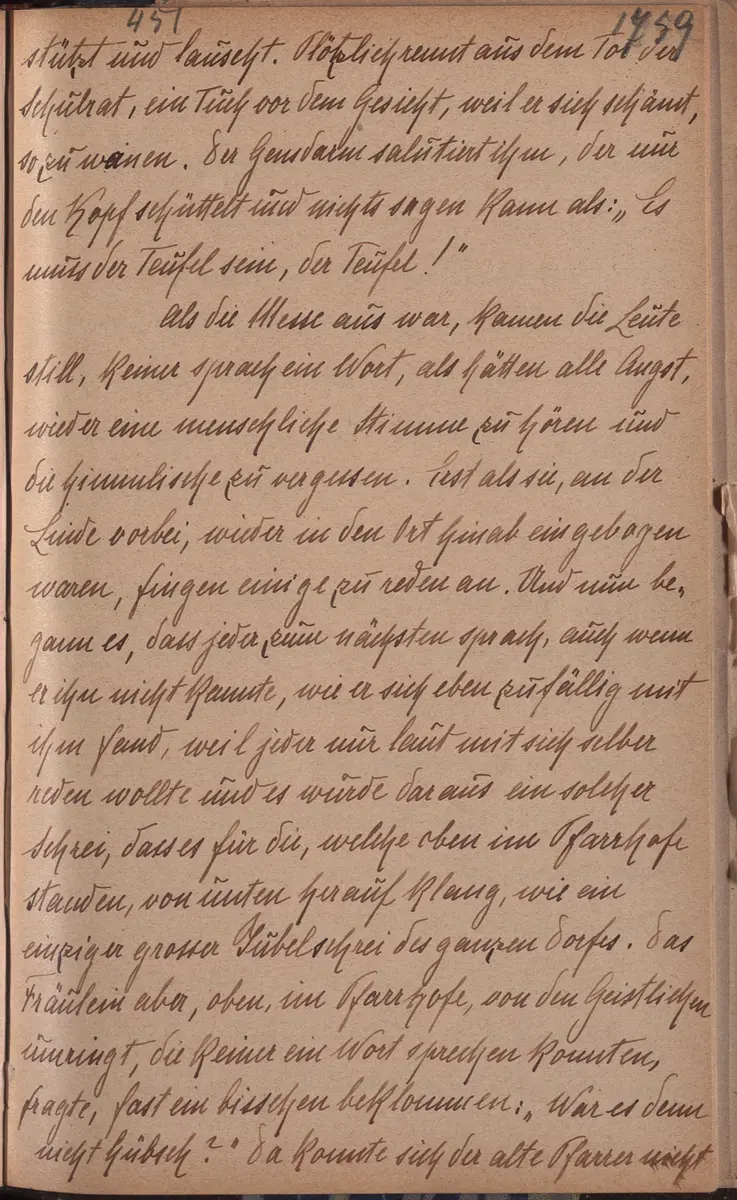 451
1759
stützt und lauscht. Plötzlich rennt aus dem Tor der
Schulrat, ein Tuch vor dem Gesicht, weil er sich schämt,
so zu weinen. Der Gensdarm salutiert ihm, der nur
den Kopf schüttelt und nichts sagen kann als: „Es
muss der Teufel sein, der Teufel!"
Als die Messe aus war, kamen die Leute
still, keiner sprach ein Wort, als hätten alle Angst,
wieder eine menschliche Stimme zu hören und
die himmlische zu vergessen. Erst als sie, an der
Linde vorbei, wieder in den Ort hinab eingebogen
waren, fingen einige zu reden an. Und nun be-
gann es, dass jeder zum nächsten sprach, auch wenn
er ihn nicht kannte, wie er sich eben zufällig mit
ihm fand, weil jeder nur laut mit sich selber
reden wollte und es wurde daraus ein solcher
Schrei, dass es für die, welche oben im Pfarrhofe
standen, von unten herauf klang, wie ein
einziger grosser Jubelschrei des ganzen Dorfes. Das
Fräulein aber, oben, im Pfarrhofe, von den Geistlichen
umringt, die keiner ein Wort sprechen konnten,
fragte, fast ein bisschen beklommen: „War es denn
nicht hübsch?" Da konnte sich der alte Pfarrer nicht